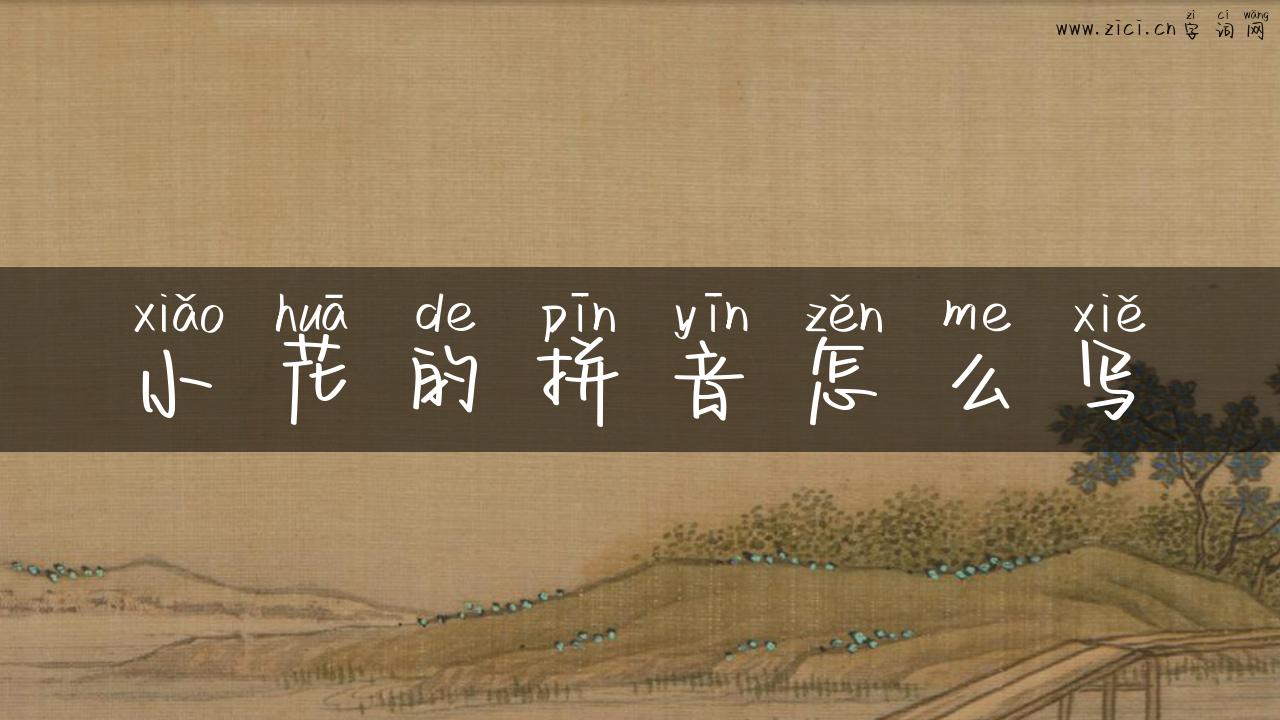 zì cí wǎng
www.zici.cn字词网
xiǎo huā de pīn yīn zěn me xiě
小花的拼音怎么写